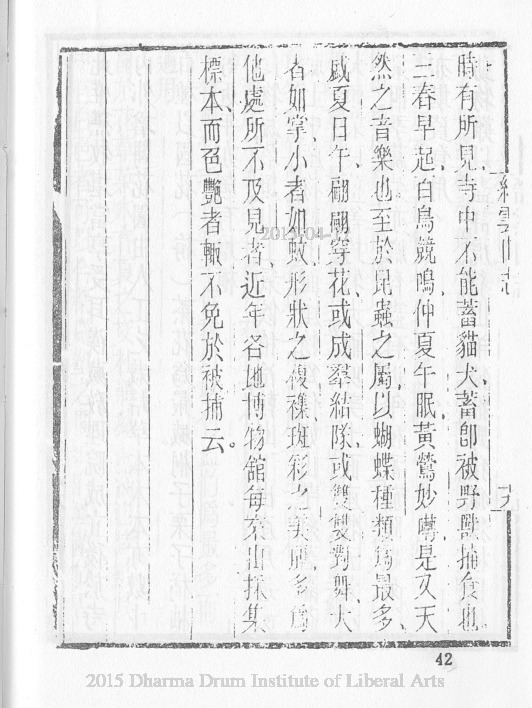 縉雲山志
十九
時有所見、寺中不能蓄貓犬、蓄卽被野獸捕食也、
三春早起、百鳥競鳴、仲夏午眠、黃鶯妙囀、是又天
然之音樂也、至於昆蟲之屬、以蝴蝶種類爲最多、
盛夏日午、翩翩穿花、或成羣結隊、或雙雙對舞、大
者如掌、小者如蚊、形狀之複襍、斑彩之美麗、多爲
他處所不及見者、近年各地博物館每來山採集
標本、而色艷者輙不免於被捕云。
42
2015 Dharma Drum Institute of Liberal Arts